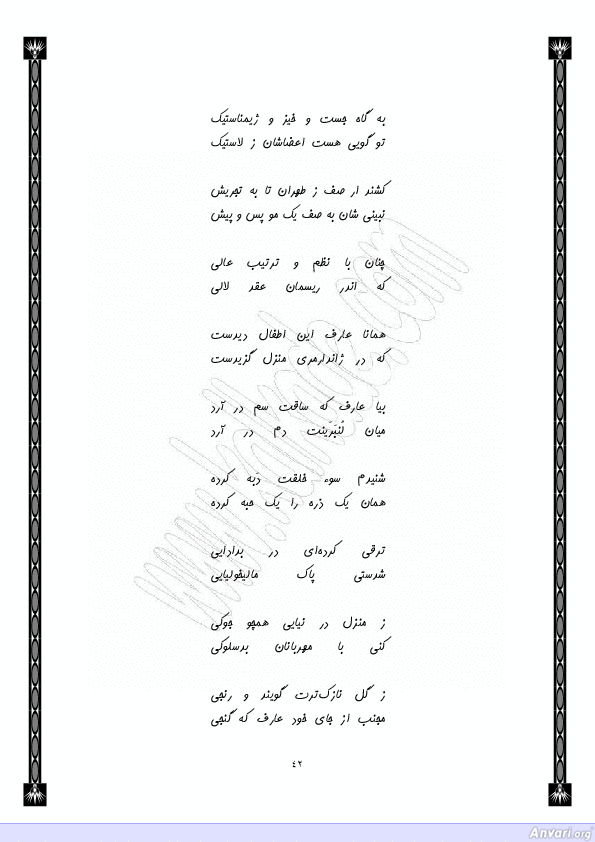 به گاه جست و خیز و ژیمناستیک
تو گویی هست اعضاشان ز لاستیک
کشند ار صف ز طهران تا به تجریش
نبینی شان به صف یک مو پس و پیش
چنان با نظم و ترتیب عالی
که اندر ریسمان عقد لالی
همانا عارف این اطفال دیدست
که در ژاندارمری منزل گزیدست
بیا عارف که ساقت سم در آرد
میان لُنبَرَینت دم در آرد
شنیدم سوء خلقت دَبه کرده
همان یک ذره را یک حبه کرده
ترقی کرده‌ای در بدادایی
شدستی پاک مالیخولیایی
ز منزل در نیایی همچو جوکی
کنی با مهربانان بدسلوکی
ز گل نازک‌ترت گویند و رنجی
مجنب از جای خود عارف که گنجی
٤٢
Anvari.org